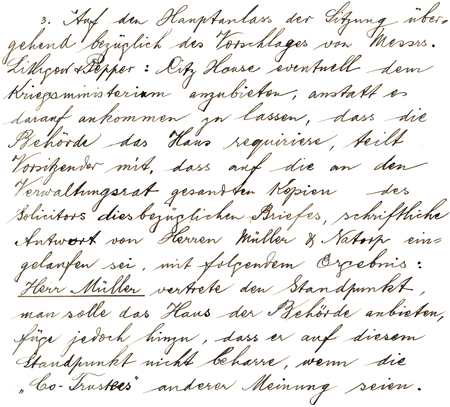 3. Auf den Hauptanlass der Sitzung über-
gehend bezüglich des Vorschlages von Messrs.
Lithgow & Pepper: City House eventuell dem
Kriegsministerium anzubieten, anstatt es
darauf ankommen zu lassen, dass die
Behörde das Haus requiriere, teilt
Vorsitzender mit, dass auf die an den
Verwaltungsrat gesandten Kopien des
Solicitors diesbezüglichen Briefes, schriftliche
Antwort von Herren Müller & Natorp ein-
gelaufen sei, mit folgendem Ergebnis:
Herr Müller vertrete den Standpunkt,
man solle das Haus der Behörde anbieten,
füge jedoch hinzu, dass er auf diesem
Standpunkt nicht beharre, wenn die
„Co-Trustees" anderer Meinung seien.